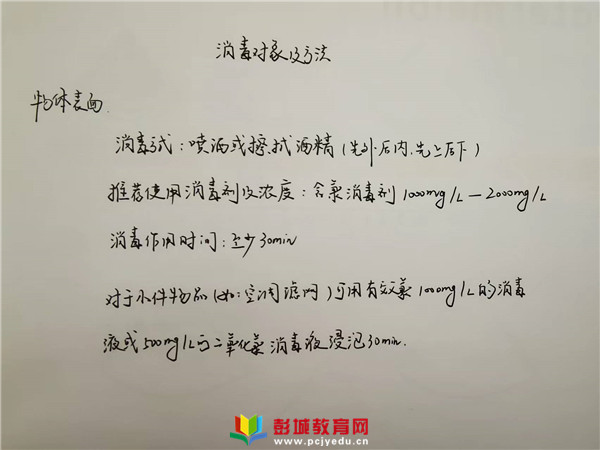 消毒对象及方法
物体表面
消毒方式：喷洒或擦拭酒精（先外后内、先上后下）
推荐使用消毒剂及浓度：含氯消毒剂1000mg/L—2000mg/L
消毒作用时间：至少30min
对于小件物品（如：空调滤网）可用有效氯1000mg/L的消毒
液或500mg/L的二氧化氯消毒液浸泡30min.
彭城教育网
www.pcjyedu.cn